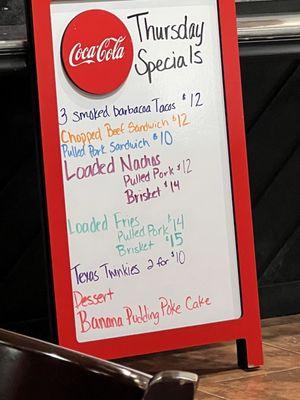 Coca-Cola
Thursday
Specials
3 smoked barbacoa Tacos $12
Chopped Beef Sandwich $12
Pulled Pork Sandwich $10
Loaded Nachos
Pulled Pork $12
Brisket $14
Loaded Fries
Pulled Pork $14
Brisket $15
Texas Twinkies 2 for $10
Dessert
Banana Pudding Poke Cake